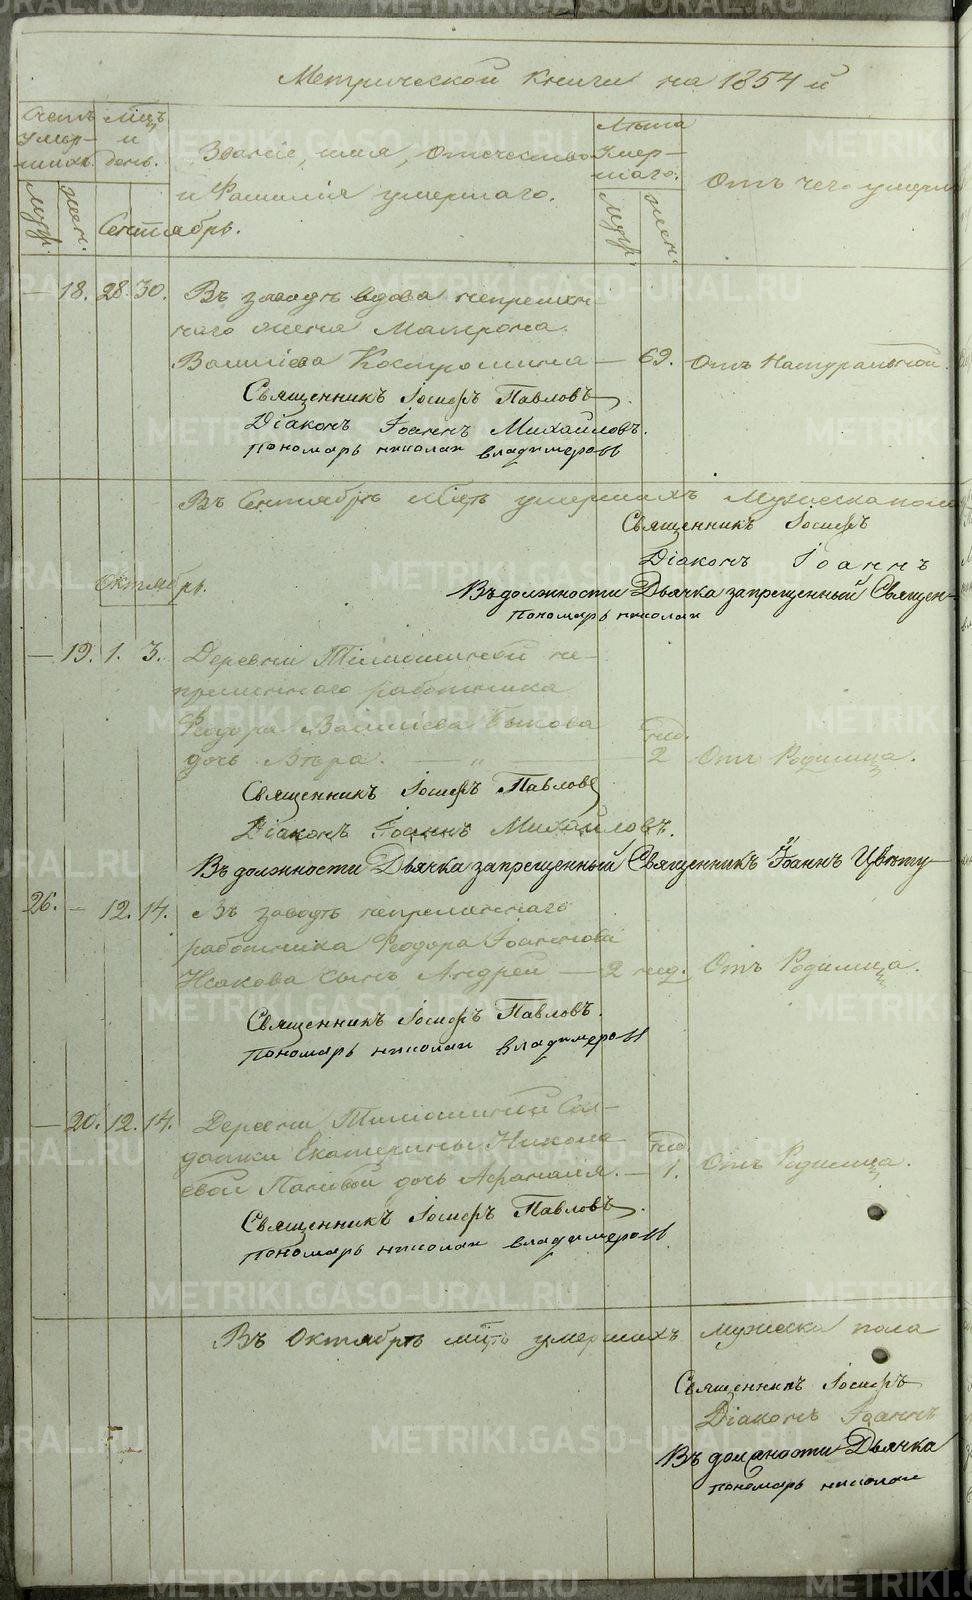 Метрической книги на 1854 й
Счетъ умер-шихъ
Мѣцъ и день.
Званіе, имя, отечество
и Фамилія умершаго.
Лѣта умер-шаго.
Отъ чего умеръ
Муж. Жен.
Муж. Жен.
Сентябрь.
— 18. 28. 30. Въ заводѣ вдова непремен-
наго жена Матрона
Васильева Костромина — 69. Отъ Натуральной.
Священникъ Іосифъ Павловъ.
Діаконъ Іоаннъ Михайловъ.
пономарь николай владимеровъ
Въ Сентябрѣ мѣцѣ умершихъ Мужеска пола
Священникъ Іосифъ
Діаконъ Іоаннъ
Октябрь.
Въ должности Дьячка запрещенный Священ-
пономарь николай
— 19. 1. 3. Деревни Тимошиной не-
пременнаго работника
Ѳедора Васильева Быкова
дочь Вѣра. — „ — нед. 2 Отъ Родимца.
Священникъ Іосифъ Павловъ
Діаконъ Іоаннъ Михайловъ.
Въ должности Дьячка запрещенный Священникъ Іоаннъ
26. — 12. 14. Въ заводѣ непременнаго
работника Ѳеодора Іоаннова
сынъ Андрей — 2 нед. Отъ Родимца.
Священникъ Іосифъ Павловъ.
пономарь николай владимеровъ
— 20. 12. 14. Деревни Тимошиной Сол-
датки Екатерины Никола-
евой Пановой дочь — нед. 1. Отъ Родимца.
Священникъ Іосифъ Павловъ.
пономарь николай владимеровъ.
Въ Октябрѣ мѣцѣ умершихъ мужеска пола
Священникъ Іосифъ
Діаконъ Іоаннъ
Въ должности Дьячка
пономарь николай
METRIKI.GASO-URAL.RU